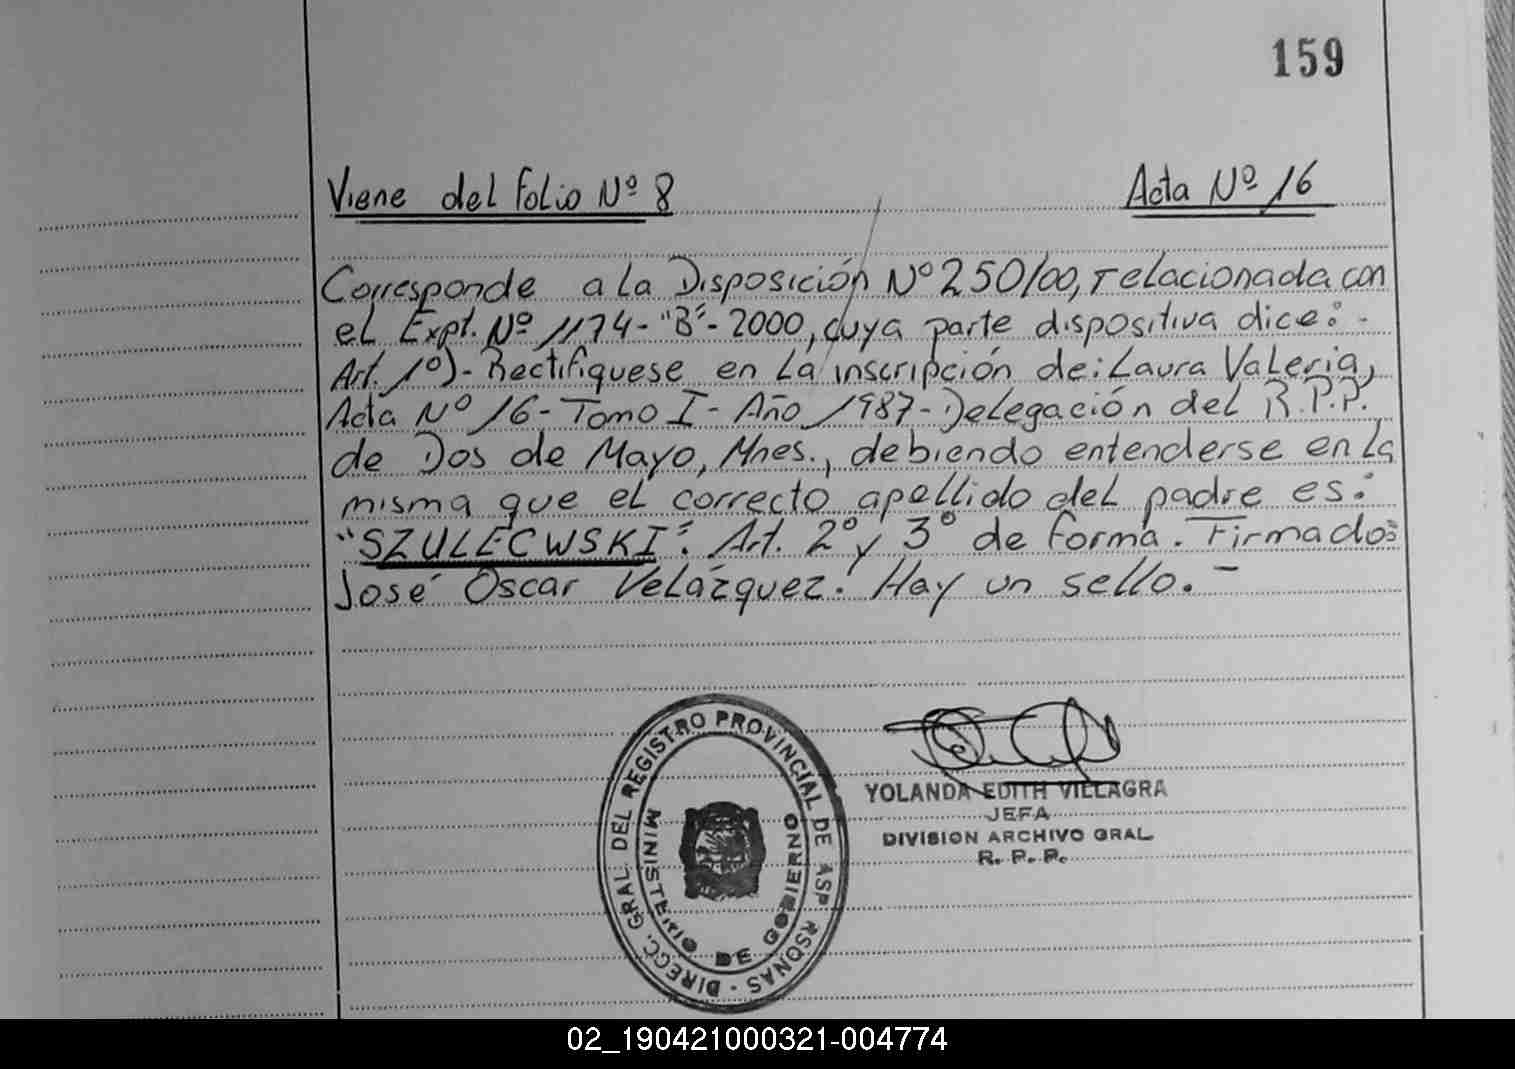 159
Viene del Folio Nº 8
Acta Nº 16
Corresponde a la Disposición Nº 250/00, relacionada con
el Expt. Nº 1174-"B"-2000, cuya parte dispositiva dice: -
Art. 1º)- Rectifíquese en la inscripción de: Laura Valeria,
Acta Nº 16- Tomo I- Año 1987- Delegación del R.P.P.
de Dos de Mayo, Mnes., debiendo entenderse en la
misma que el correcto apellido del padre es:
"SZULECWSKI". Art. 2º y 3º de forma. Firmado:
José Oscar Velázquez. Hay un sello. -
DIRECC. GRAL. DEL REGISTRO PROVINCIAL DE LAS PERSONAS -
MINISTERIO DE GOBIERNO
YOLANDA EDITH VILLAGRA
JEFA
DIVISION ARCHIVO GRAL.
R. P. P.
02_190421000321-004774